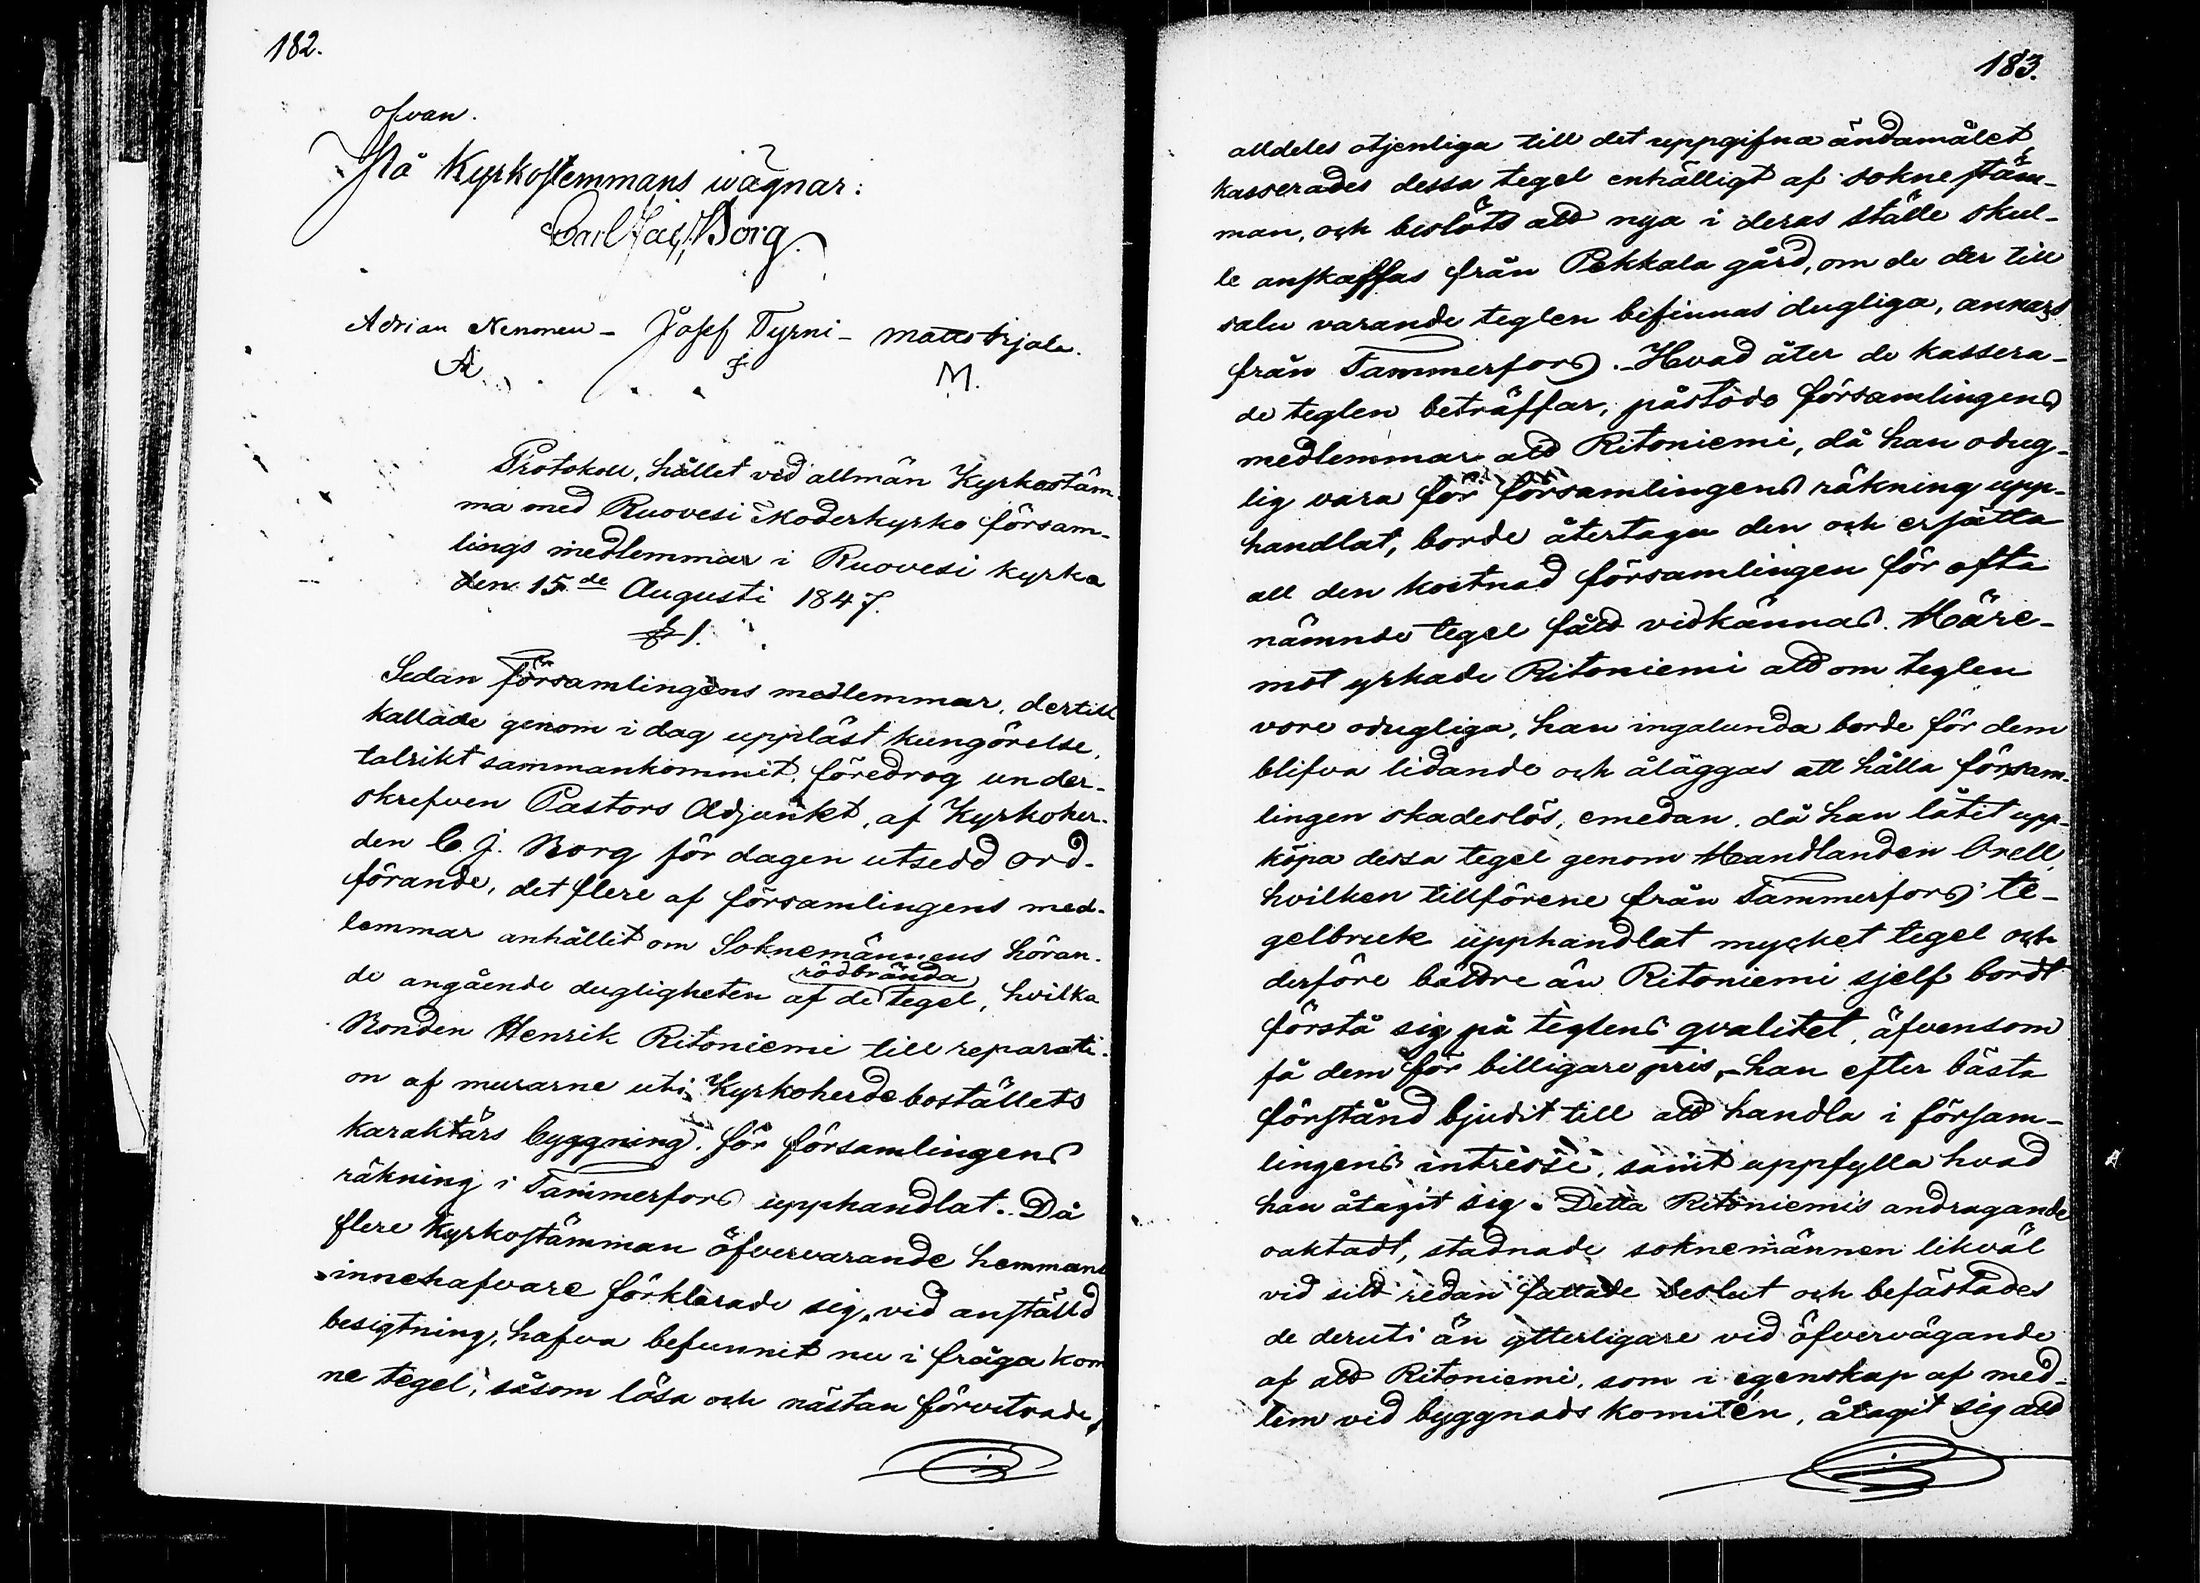 182.
ofvan.
På Kyrkostemmans wägnar:
Carl Borg.
Adrian Nenonen - Josef Tyrni - Matts
A F M.
Protokoll, hållet vid allmän Kyrkostäm-
ma med Ruovesi Moderkyrko försam-
lings medlemmar i Ruovesi kyrka
den 15de Augusti 1847.
§ 1.
Sedan församlingens medlemmar, dertill
kallade genom i dag uppläst kungörelse,
talrikt sammankommit, föredrog under-
skrefven Pastors Adjunkt, af Kyrkoher-
den C. J. Borg för dagen utsedd ord-
förande, det flere af församlingens med-
lemmar anhållit om Soknemännens höran-
de angående dugligheten af de rödbrända tegel, hvilka
Bonden Henrik Ritoniemi till reparati-
on af murarne uti Kyrkoherdebostállets
karaktärs byggning, för församlingens
räkning i Tammerfors upphandlat. Då
flere Kyrkostämman öfvervarande hemmans
innehafvare förklarade sig, vid anställd
besigtning, hafva befunnit nu i fråga kom
ne tegel, såsom lösa och nästan förvitrade,
183.
alldeles otjenliga till det uppgifna ändamålet,
kasserades dessa tegel enhälligt af soknestäm-
man, och beslöts att nya i deras ställe skul-
le anskaffas från Pekkala gård, om de der till
salu varande teglen befinnas dugliga, annars
från Tammerfors. - Hvad åter de kassera-
de teglen beträffar, påstodo församlingens
medlemmar att Ritoniemi, då han odug-
lig vara för församlingens räkning upp-
handlat, borde återtaga den och ersätta
all den kostnad församlingen för ofta
nämnde tegel fått vidkännas. Häre-
mot yrkade Ritoniemi att om teglen
vore odugliga, han ingalunda borde för dem
blifva lidande och åläggas att hålla försam-
lingen skadeslös, emedan, då han låtit upp-
köpa dessa tegel genom Handlanden Orell,
hvilken tillförene från Tammerfors te-
gelbruk upphandlat mycket tegel och
derföre bättre än Ritoniemi sjelf bordt
förstå sig på teglens qvalitet, äfvensom
få dem för billigare pris, - han efter bästa
förstånd bjudit till att handla i försam-
lingens intresse, samt uppfylla hvad
han åtagit sig. Detta Ritoniemis andragande
oaktadt, stadnade soknemännen likväl
vid sitt redan fattade beslut och befästades
de deruti än ytterligare vid öfvervägande
af att Ritoniemi, som i egenskap af med-
lem vid byggnads komitén, åtagit sig att